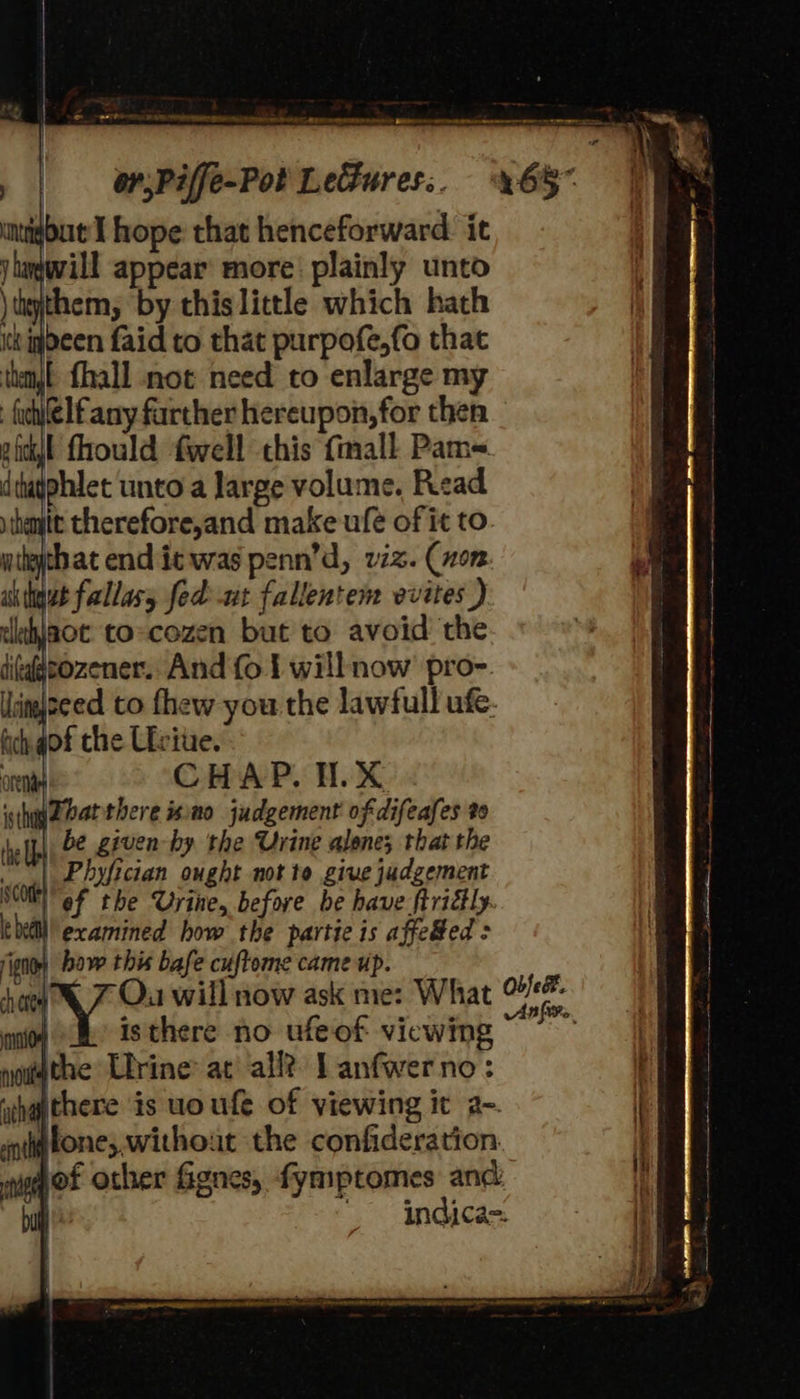 or, Pisse-Pot Lectures.
but I hope that henceforward it
will appear more plainly unto
them, by this little which hath
been ſaid to that purpoſe, ſo that
I ſhall not need to enlarge my
ſelf any further hereupon, for then
I ſhould ſwell this ſmall Pam-
phlet unto a large volume. Read
it therefore, and make uſe of it to
that end it was penn'd, viz. (non
ut fallas, ſed ut fallentem evites)
not to cozen but to avoid the
cozener. And ſo I will now pro-
ceed to ſhew you the lawfull uſe
of the Urine.
CHAP. II. X
That there is no judgement of diſeaſes to
be given by the Urine alone; that the
Phyſician ought not to give judgement
of the Urine, before he have ſtrictly
examined how the partie is affected:
how this baſe cuſtome came up.
YOu will now ask me: What Object.
is there no uſe of viewing Anſw.
the Urine at all? I anſwer no:
there is no uſe of viewing it a-
lone, without the conſideration
of other ſignes, ſymptomes and
indica-